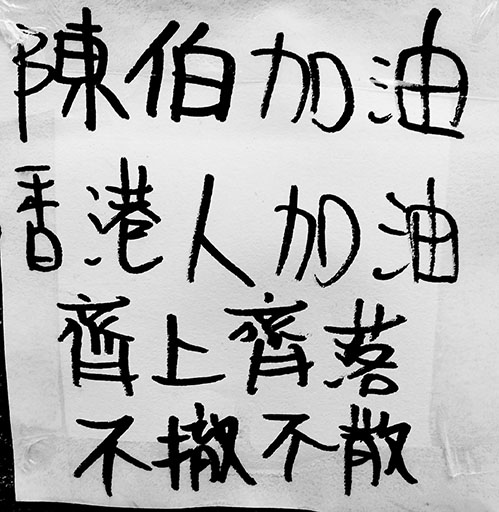 陳伯加油
香港人加油
齊上齊落
不撤不散